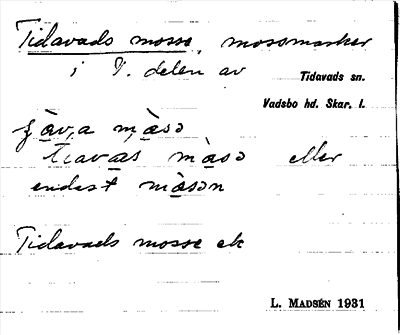 Tidavads mosse, mossmarker
i V. delen av
Tidavads sn.
Vadsbo hd. Skar. l.
mɑ̀sə
mɑ̀sə eller
endast mɑ̀sən
Tidavads mosse ek
L. MADSÉN 1931